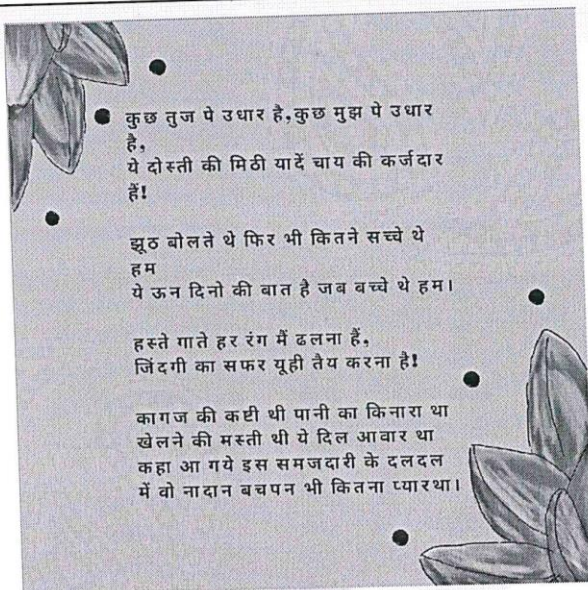 कुछ तुज पे उधार है,कुछ मुझ पे उधार
है,
ये दोस्ती की मिठी यादें चाय की कर्जदार
हैं!
झूठ बोलते थे फिर भी कितने सच्चे थे
हम
ये ऊन दिनो की बात है जब बच्चे थे हम।
हस्ते गाते हर रंग मैं ढलना हैं,
जिंदगी का सफर यूही तैय करना है!
कागज की कष्टी थी पानी का किनारा था
खेलने की मस्ती थी ये दिल आवार था
कहा आ गये इस समजदारी के दलदल
में वो नादान बचपन भी कितना प्यारथा।